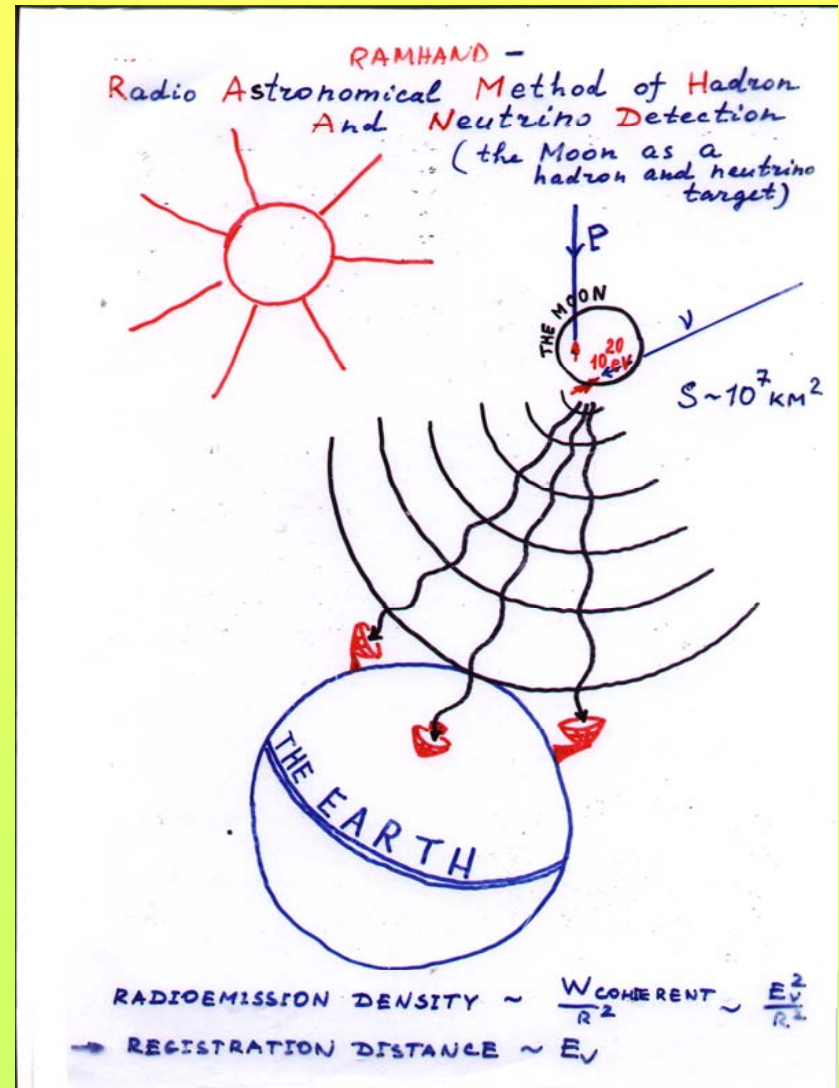 RAMHAND –
Radio Astronomical Method of Hadron
And Neutrino Detection
(the Moon as a
hadron and neutrino
target)
P
THE MOON
ν
10²⁰ eV
S ~ 10⁷ KM²
THE EARTH
RADIOEMISSION DENSITY ~ W COHERENT / R² ~ Eν² / R²
→ REGISTRATION DISTANCE ~ Eν